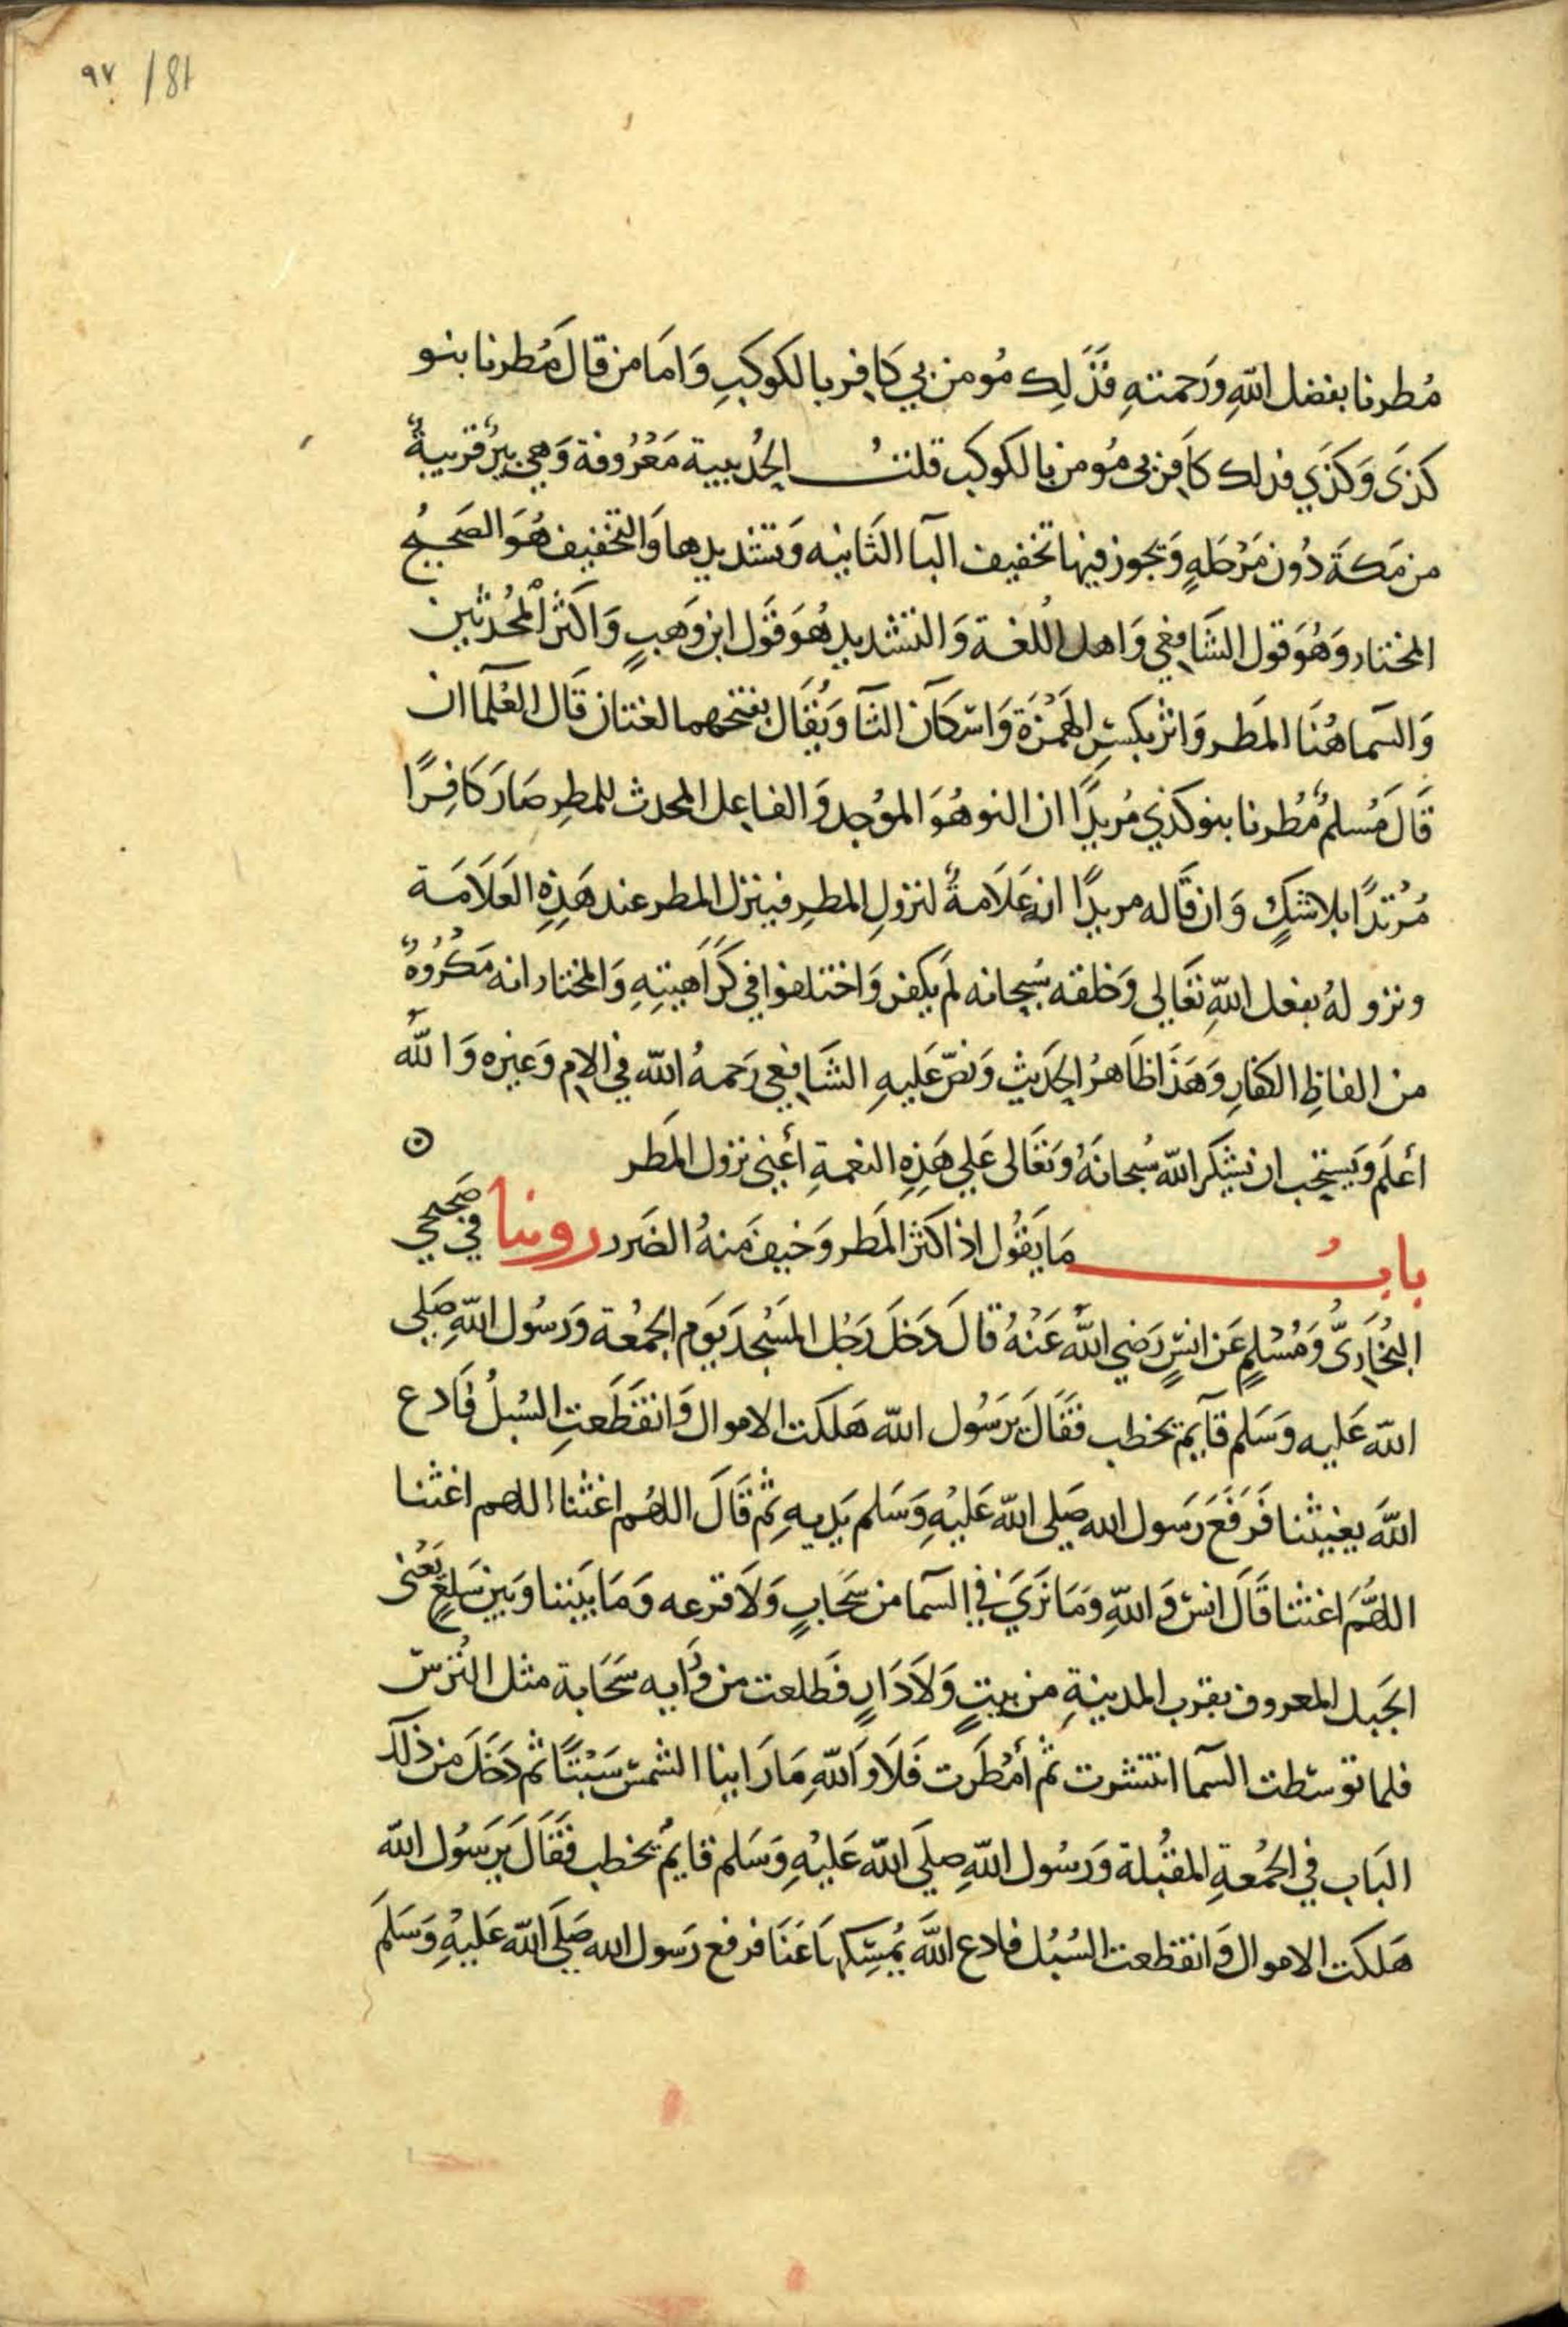 ٩٧ / 81
مُطرنا بفضل اللّهِ وَرَحمتهِ فَذَلِك مُومن بي كَافِر بالكوكبِ وَامَا من قالَ مُطرنا بنو
كذَى وَكذَي فذلك كَافِر بي مُومن بالكوكب قلتُ الحُديبية مَعْرُوفة وَهي بيرٌ قَريبةٌ
من مَكةَ دُون مَرْحَلهٍ وَيجوز فيها تخفيف اليآ الثَانيه وَتشديدها وَالتخفيف هُوَ الصَحيحُ
المختار وَهُوَ قول الشَافِعي وَاهل اللُغة وَالتشديد هُوَ قَول ابن وَهبٍ وَاكثر المُحَدثين
وَالسَما هُنَا المَطر وَاثر بكسْرِ الهَمْزَة وَاسْكَان الثَآ وَيُقَال بفتحهما لغتان قَال العُلَمآ ان
قَالَ مُسلمٌ مُطرنا بنو كذي مُريدًا ان النو هُوَ الموُجد وَالفاعِل المحدث للمطِر صَارَ كَافِرًا
مُرْتدًا بلا شكٍ وَان قَاله مريدًا انه عَلَامةٌ لنزولِ المطرِ فينزل المطر عند هَذِهِ العَلَامَة
ونزولهُ بفعل اللّهِ تعَالى وَخلقه سُبحانه لَم يكفر وَاختلفوا في كَرَاهيتِهِ وَالمختار انه مَكرُوهٌ
من الفاظِ الكفارِ وَهَذَا ظَاهرُ الحَديثِ وَنصّ عَليهِ الشَافِعي رَحمهُ اللّه في الام وَغيره وَاللّه
أعلَم وَيَستحب ان يشكر اللّه سُبحانَهُ وَتعَالى عَلي هَذِهِ النعمةِ أعني نزول المَطر
بابُ مَا يَقُول اذا كثرَ المَطر وَخيف مَنهُ الضَرر روينا في صَحيحي
البُخَارىّ وَمُسْلمٍ عَن انسٍ رَضي اللّه عَنْهُ قالَ دَخلَ رَجُل المَسْجدَ يَوَم الجمُعة وَرَسُول اللّهِ صَلي
اللّه عَليه وَسَلم قآيم يخطب فَقَالَ يرَسُول اللّه هَلكت الاموال وَانقَطَعتِ السُبلُ فَادع
اللّهَ يغيثنا فَرَفَعَ رَسول الله صَلى اللّه عَليْهِ وَسَلم يَديهِ ثم قَالَ اللهُم اغثنا اللهم اغثنا
اللهُمَ اغثنا قَالَ انسٌ وَاللّهِ وَمَا نَرَيَ في السَما من سَحَابٍ وَلَا قزعه وَمَا بَيننا وَبين سَلعٍ يَعْنى
الجَبل المعروف بقرب المدينةِ من بيتٍ وَلَا دَارٍ فَطلعت من وَرَايه سَحَابة مثل التُرسّ
فلما توسّطت السَما انتشرت ثم أمْطَرَت فَلَا وَاَللّهِ مَا رَاينا الشمسّ سَبْتًا ثم دَخَلَ من ذلك
البَاب في الجمُعةِ المقبُلة وَرَسُول اللّهِ صلَي اللّه عَليْهِ وَسَلم قايمٌ يخطب فَقَالَ يَرَسُول اللّه
هَلكت الاموال وَانقطعت السُبُل فادع اللّهَ يُمسِّكهَا عَنَا فرفع رَسول الله صَلَي اللّه عَليْهِ وَسَلَم